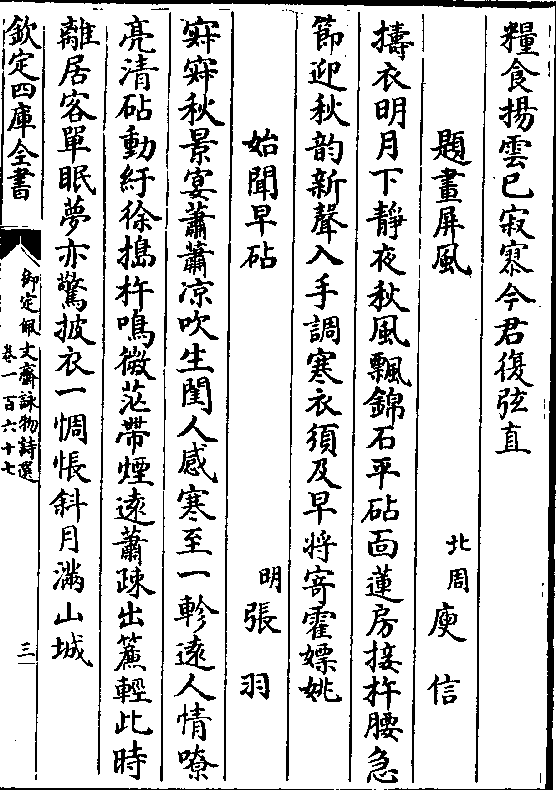 糧食揚雲已寂寥今君復弦直
題畫屏風
北周庾信
擣衣明月下靜夜秋風飄錦石平砧面蓮房接杵腰急
節迎秋韵新聲入手調寒衣須及早將寄霍嫖姚
始聞早砧
明張羽
寂寂秋景宴蕭蕭凉吹生閨人感寒至一軫遠人情嘹
亮清砧動紆徐搗杵鳴微茫帶煙遠蕭踈出簾輕此時
離居客單眠夢亦驚披衣一惆悵斜月滿山城
欽定四庫全書
御定佩文齋詠物詩選
卷一百六十七
三